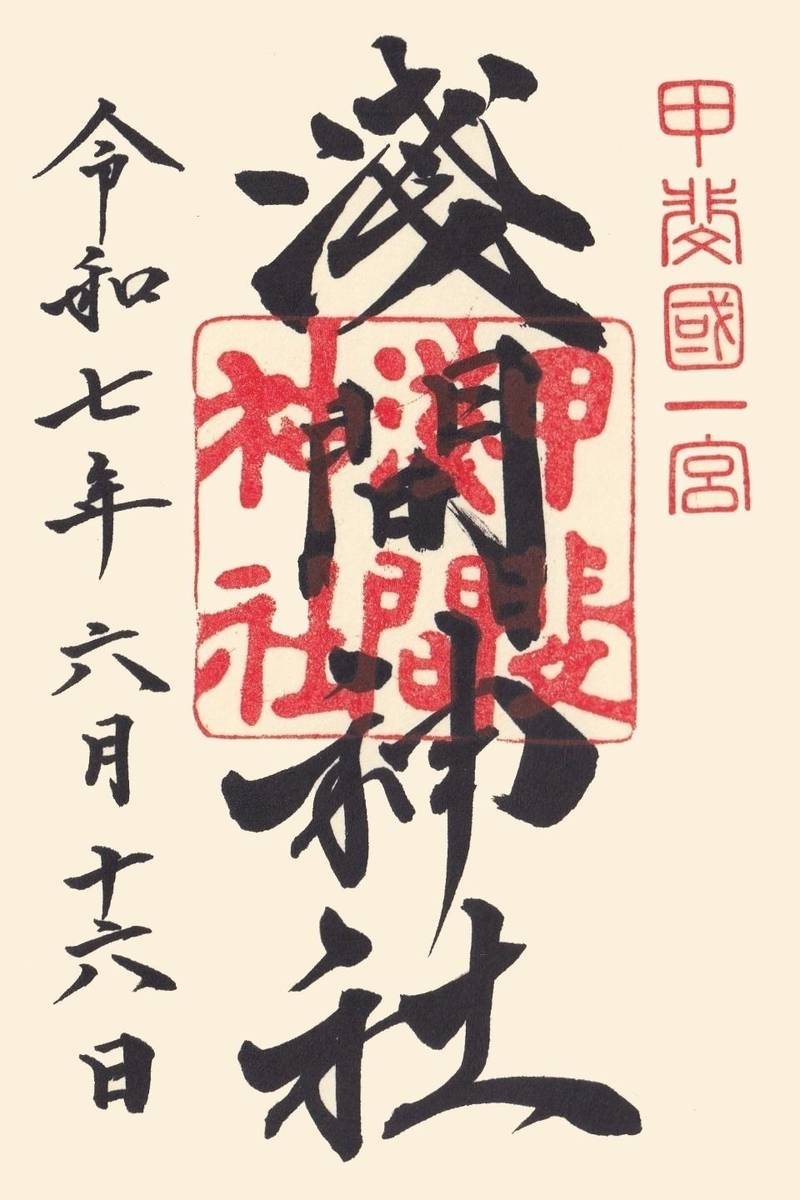 甲斐國一宮
淺間神社
甲斐
淺間
神社
令和七年六月十六日